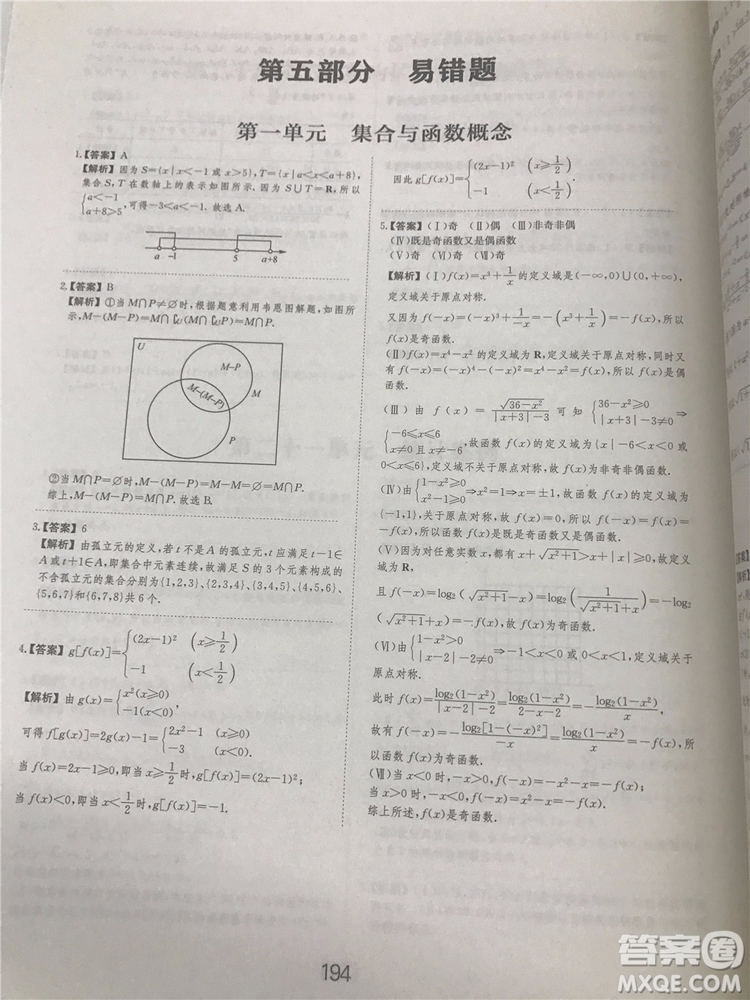 第五部分 易错题
第一单元 集合与函数概念
1.【答案】A
【解析】因为S={x|x<-1或x>5},T={x|a<x<a+8},集合S,T在数轴上的表示如图所示.因为S∪T=R,所以
{a<-1
a+8>5,可得-3<a<-1.故选A.
a -1 5 a+8
2.【答案】B
【解析】①当M∩P≠∅时,根据题意利用韦恩图解题,如图所
示,M-(M-P)=M∩∁U(M∩∁UP)=M∩P.
U
M-P
M-(M-P)
M
P
②当M∩P=∅时,M-(M-P)=M-M=∅=M∩P.
综上,M-(M-P)=M∩P.故选B.
3.【答案】6
【解析】由孤立元的定义,若t不是A的孤立元,t应满足t-1∈
A或t+1∈A,即集合中元素连续,故满足S的3个元素构成的
不含孤立元的集合分别为{1,2,3},{2,3,4},{3,4,5},{4,5,6},
{5,6,7}和{6,7,8}共6个.
4.【答案】g[f(x)]={(2x-1)² (x≥1/2)
-1 (x<1/2)
【解析】由g(x)={x²(x≥0)
-1(x<0),
可得f[g(x)]=2g(x)-1={2x²-1 (x≥0)
-3 (x<0).
当f(x)=2x-1≥0,即当x≥1/2时,g[f(x)]=(2x-1)²;
当f(x)<0,即当x<1/2时,g[f(x)]=-1.
因此g[f(x)]={(2x-1)² (x≥1/2)
-1 (x<1/2).
5.【答案】(Ⅰ)奇 (Ⅱ)偶 (Ⅲ)非奇非偶
(Ⅳ)既是奇函数又是偶函数
(Ⅴ)奇 (Ⅵ)奇 (Ⅶ)奇
【解析】(Ⅰ)f(x)=x³+1/x的定义域为(-∞,0)∪(0,+∞),
定义域关于原点对称.
又因为f(-x)=(-x)³+1/(-x)=-(x³+1/x)=-f(x),
所以f(x)是奇函数.
(Ⅱ)f(x)=x⁴-x²的定义域为R,定义域关于原点对称,同时又
有f(-x)=(-x)⁴-(-x)²=x⁴-x²=f(x),所以f(x)是偶
函数.
(Ⅲ)由f(x)=√(36-x²)/(|x+3|-3)可知{36-x²≥0
|x+3|-3≠0⇒
{-6≤x≤6
x≠0,x≠-6,故函数f(x)的定义域为{x|-6<x≤6且x≠
0},定义域不关于原点对称,故函数f(x)为非奇非偶函数.
(Ⅳ)由{1-x²≥0
x²-1≥0⇒x²=1⇒x=±1,故函数f(x)的定义域为
{-1,1},关于原点对称,故f(x)=0,所以f(-x)=f(x)=
-f(x),所以函数f(x)既是奇函数又是偶函数.
(Ⅴ)因为对任意实数x,都有x+√(x²+1)>x+|x|≥0,故定义
域为R.
且f(-x)=log₂(√(x²+1)-x)=log₂(1/(√(x²+1)+x))=-log₂
(√(x²+1)+x)=-f(x),故f(x)为奇函数.
(Ⅵ)由{1-x²>0
|x-2|-2≠0⇒-1<x<0或0<x<1,定义域关于原
点对称.
此时f(x)=log₂(1-x²)/(|x-2|-2)=log₂(1-x²)/(2-x-2)=-log₂(1-x²)/x,
故有f(-x)=-log₂[1-(-x)²]/(-x)=log₂(1-x²)/x=-f(x),
所以函数f(x)为奇函数.
(Ⅶ)当x<0时,-x>0,f(-x)=-x²-x=-f(x);
当x>0时,-x<0,f(-x)=x²-x=-f(x).
综上所述,f(x)是奇函数.
194
答案圈
MXQE.COM